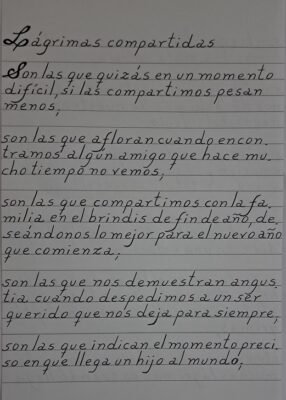 Lágrimas compartidas
Son las que quizás en un momento
difícil, si las compartimos pesan
menos;
son las que afloran cuando encon_
tramos algún amigo que hace mu_
cho tiempo no vemos;
son las que compartimos con la fa_
milia en el brindis de fin de año, de_
seándonos lo mejor para el nuevo año
que comienza;
son las que nos demuestran angus_
tia cuando despedimos a un ser
querido que nos deja para siempre;
son las que indican el momento preci_
so en que llega un hijo al mundo;